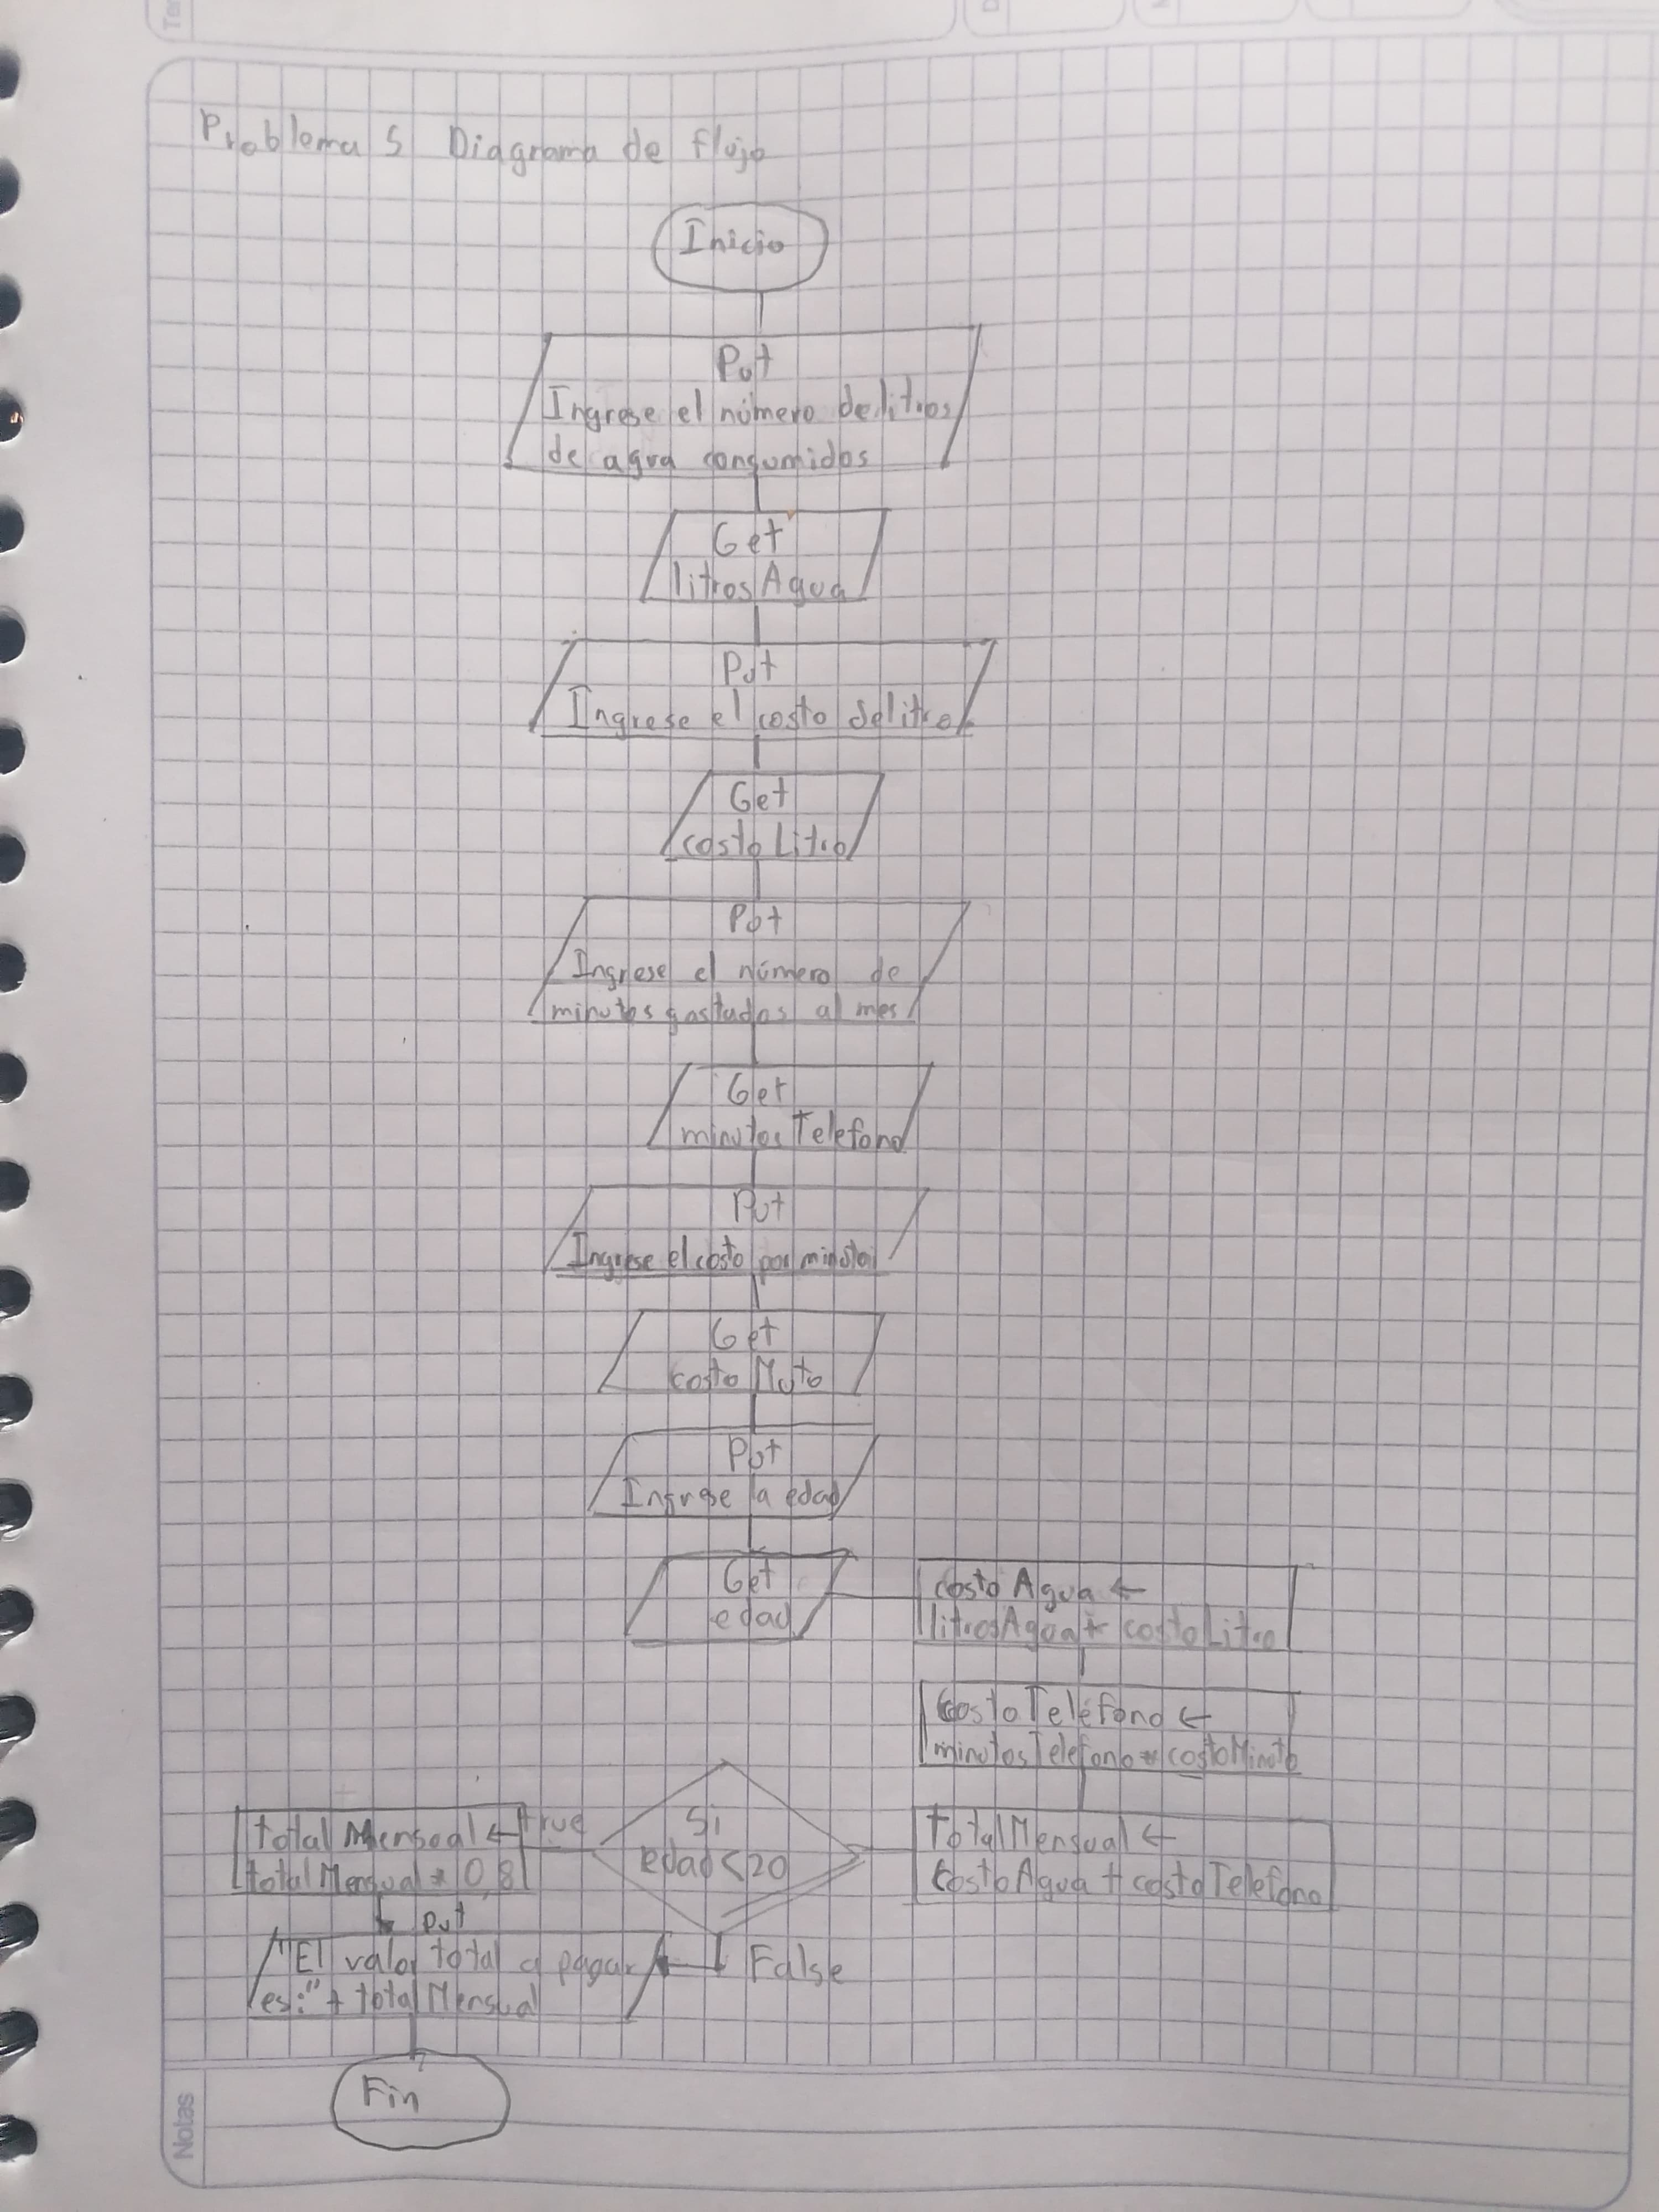 Problema 5 Diagrama de flujo
Inicio
Put
Ingrese el número de litros
de agua consumidos
Get
litrosAgua
Put
Ingrese el costo delitro
Get
costoLitro
Put
Ingrese el número de
minutos gastados al mes
Get
minutosTelefono
Put
Ingrese el costo por minuto
Get
costo Muto
Put
Ingrese la edad
Get
edad
costo Agua ←
litrosAgua * costoLitro
CostoTeléfono ←
minutosTelefono * costoMinuto
totalMensual ←
CostoAgua + costoTelefono
Si
Edad < 20
true
total Mensual ←
totalMensual * 0,8
False
put
"El valor total a pagar
es:" + totalMensual
Fin
Notas